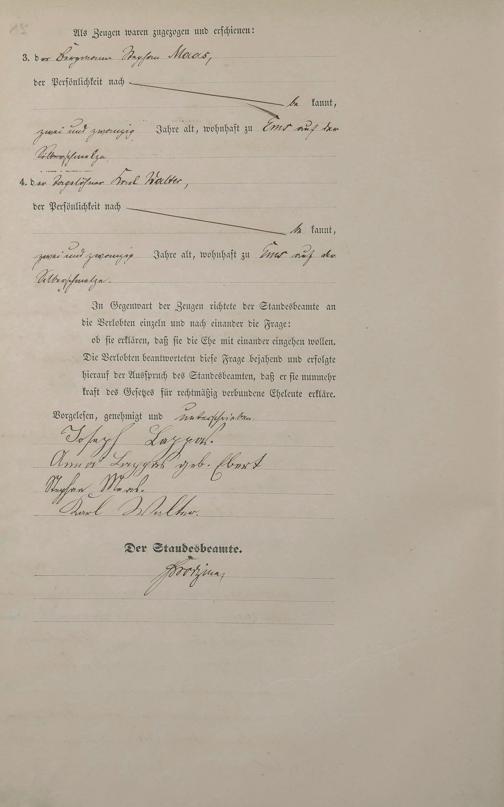 Als Zeugen waren zugezogen und erschienen:
3. der Bergmann Stephan Maas,
der Persönlichkeit nach
be kannt,
zwei und zwanzig Jahre alt, wohnhaft zu Ems auf der
Silberschmelze
4. der Tagelöhner Karl Walter,
der Persönlichkeit nach
be kannt,
zwei und zwanzig Jahre alt, wohnhaft zu Ems auf der
Silberschmelze.
In Gegenwart der Zeugen richtete der Standesbeamte an
die Verlobten einzeln und nach einander die Frage:
ob sie erklären, daß sie die Ehe mit einander eingehen wollen.
Die Verlobten beantworteten diese Frage bejahend und erfolgte
hierauf der Ausspruch des Standesbeamten, daß er sie nunmehr
kraft des Gesetzes für rechtmäßig verbundene Eheleute erkläre.
Vorgelesen, genehmigt und unterschrieben
Joseph Lappas.
Anna Lappas geb. Ebert
Stephan Maas.
Karl Walter.
Der Standesbeamte.